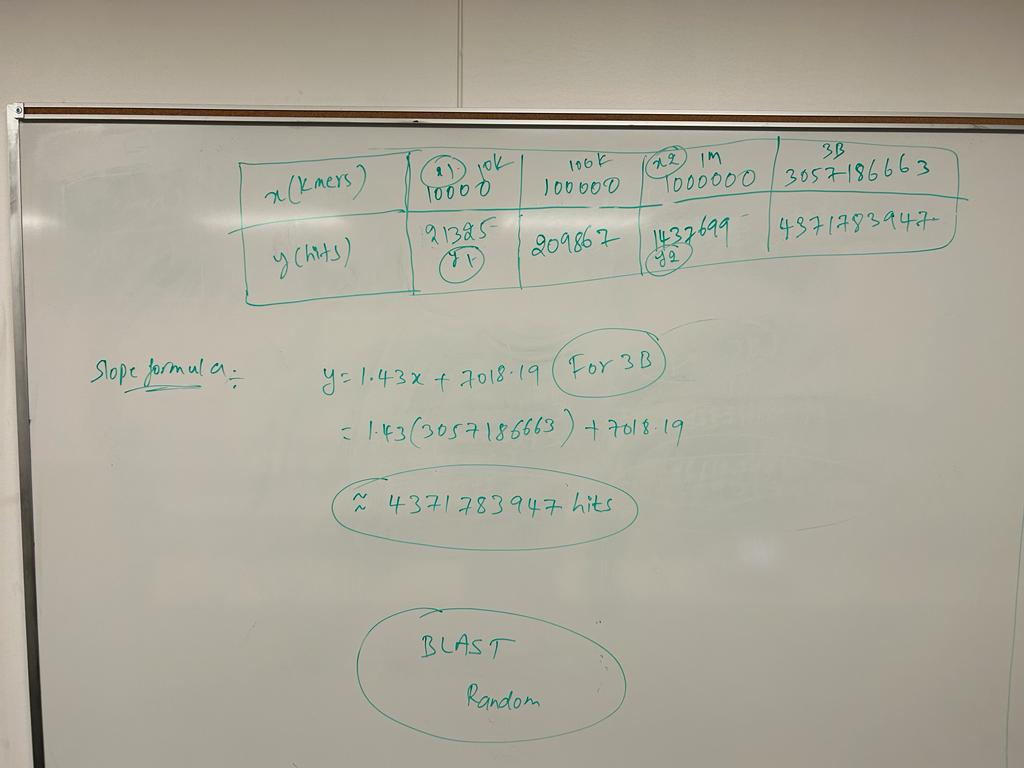 x(Kmers) x1 10K 10000 100K 100000 x2 1M 1000000 3B 3057186663
y(hits) 21325 y1 209867 1437699 y2 4371783947
Slope formula:
y = 1.43x + 7018.19 For 3B
= 1.43(3057186663) + 7018.19
≈ 4371783947 hits
BLAST
Random